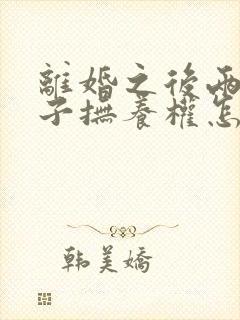 離婚之後兩
子撫養權怎
韩美嬌